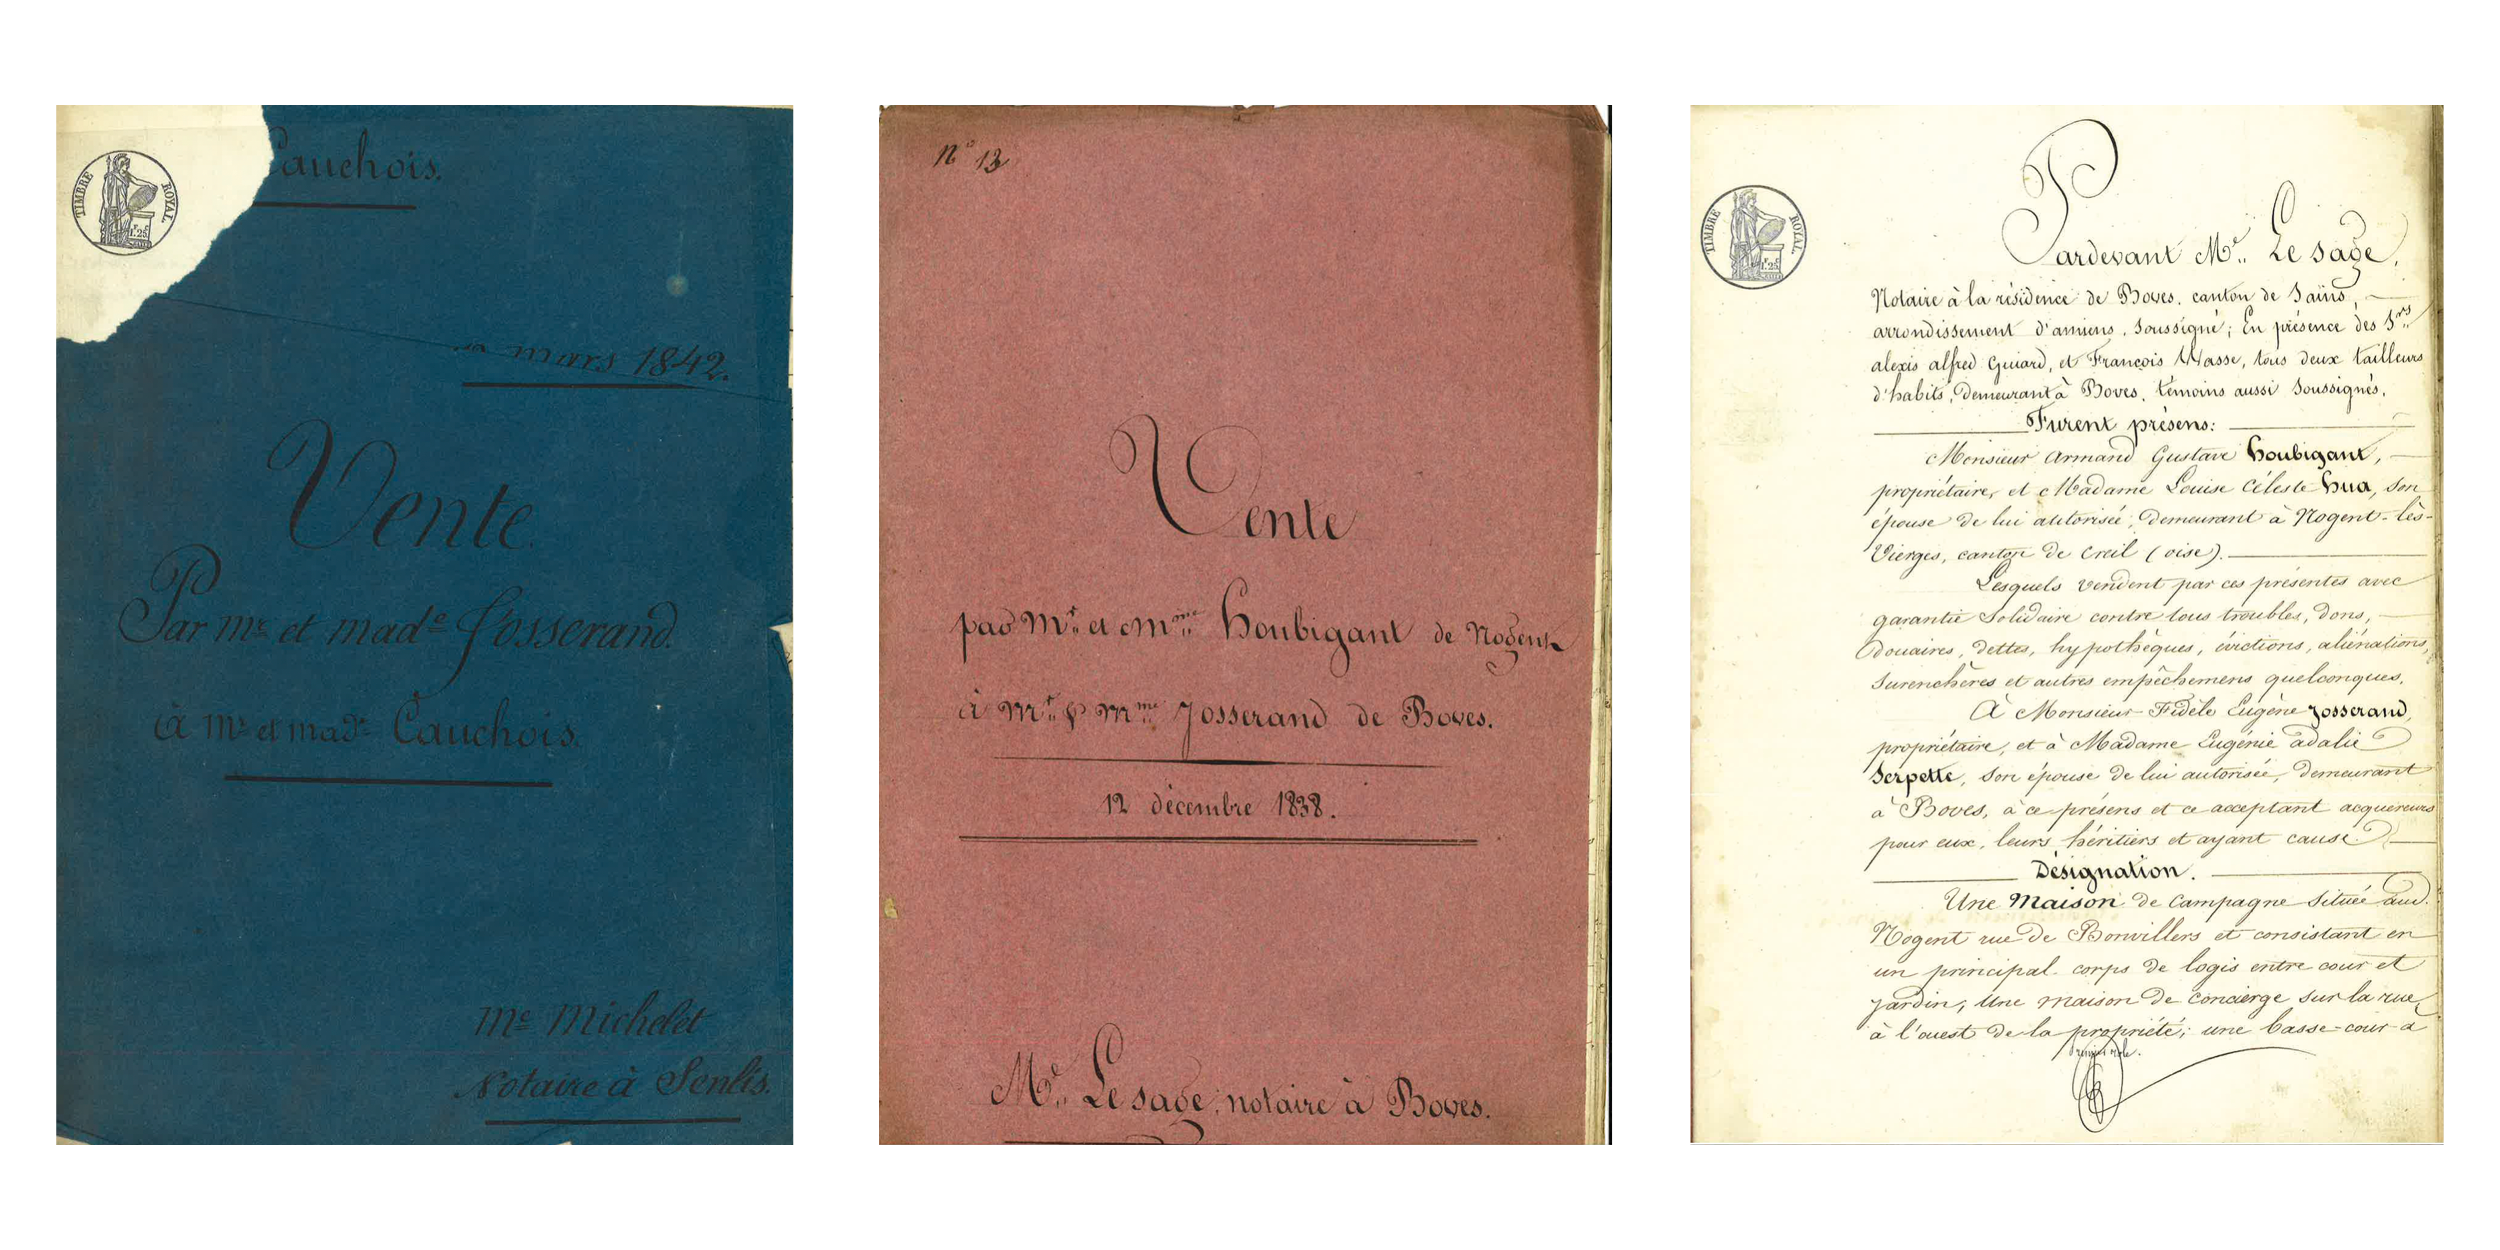 Cauchois.
TIMBRE ROYAL.
1f.25c
mars 1842.
Vente.
Par Mr et made Josserand.
à Mr et made Cauchois.
Me Michelet
Notaire à Senlis.
No 13
Vente
par Mr. et Mme. Houbigant de Nogent
à Mr. & Mme. Josserand de Boves.
12 décembre 1838.
Me. Le sage, notaire à Boves.
TIMBRE ROYAL.
1f.25c
Pardevant Me. Le sage,
Notaire à la résidence de Boves, canton de Sains,
arrondissement d'amiens, soussigné; En présence des Srs.
alexis alfred Guiard, et François Wasse, tous deux tailleurs
d'habits, demeurant à Boves, témoins aussi soussignés.
Furent présens:
Monsieur Armand Gustave houbigant,
propriétaire, et Madame Louise Céleste hua, son
épouse de lui autorisée, demeurant à Nogent-lès-
Vierges, canton de Creil (oise).
Lesquels vendent par ces présentes avec
garantie solidaire contre tous troubles, dons,
douaires, dettes, hypothèques, évictions, aliénations,
surenchères et autres empêchemens quelconques,
À Monsieur Fidèle Eugène Josserand,
propriétaire, et à Madame Eugénie adalie
Serpette, son épouse de lui autorisée, demeurant
à Boves, à ce présens et ce acceptant acquéreurs
pour eux, leurs héritiers et ayant cause.
Désignation.
Une Maison de Campagne située aud.
Nogent rue de Bonvillers et consistant en
un principal corps de logis entre cour et
jardin; Une maison de concierge sur la rue,
à l'ouest de la propriété; une basse-cour à
Premier rôle.